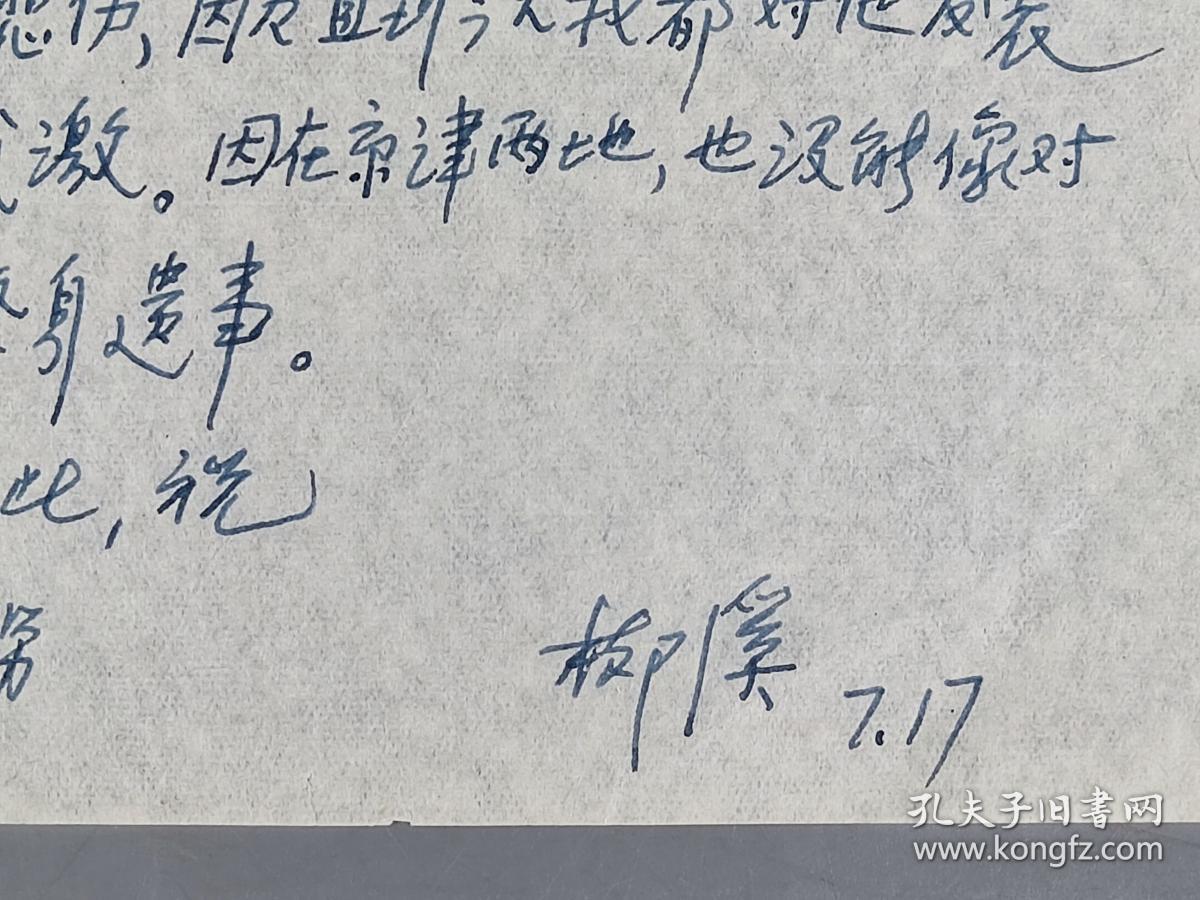 悲伤，因为直到今天我都对他及袁
激。因在京津两地，也没能像对
身遗事。
此，祝
劳
柳溪 7.17
孔夫子旧书网
www.kongfz.com